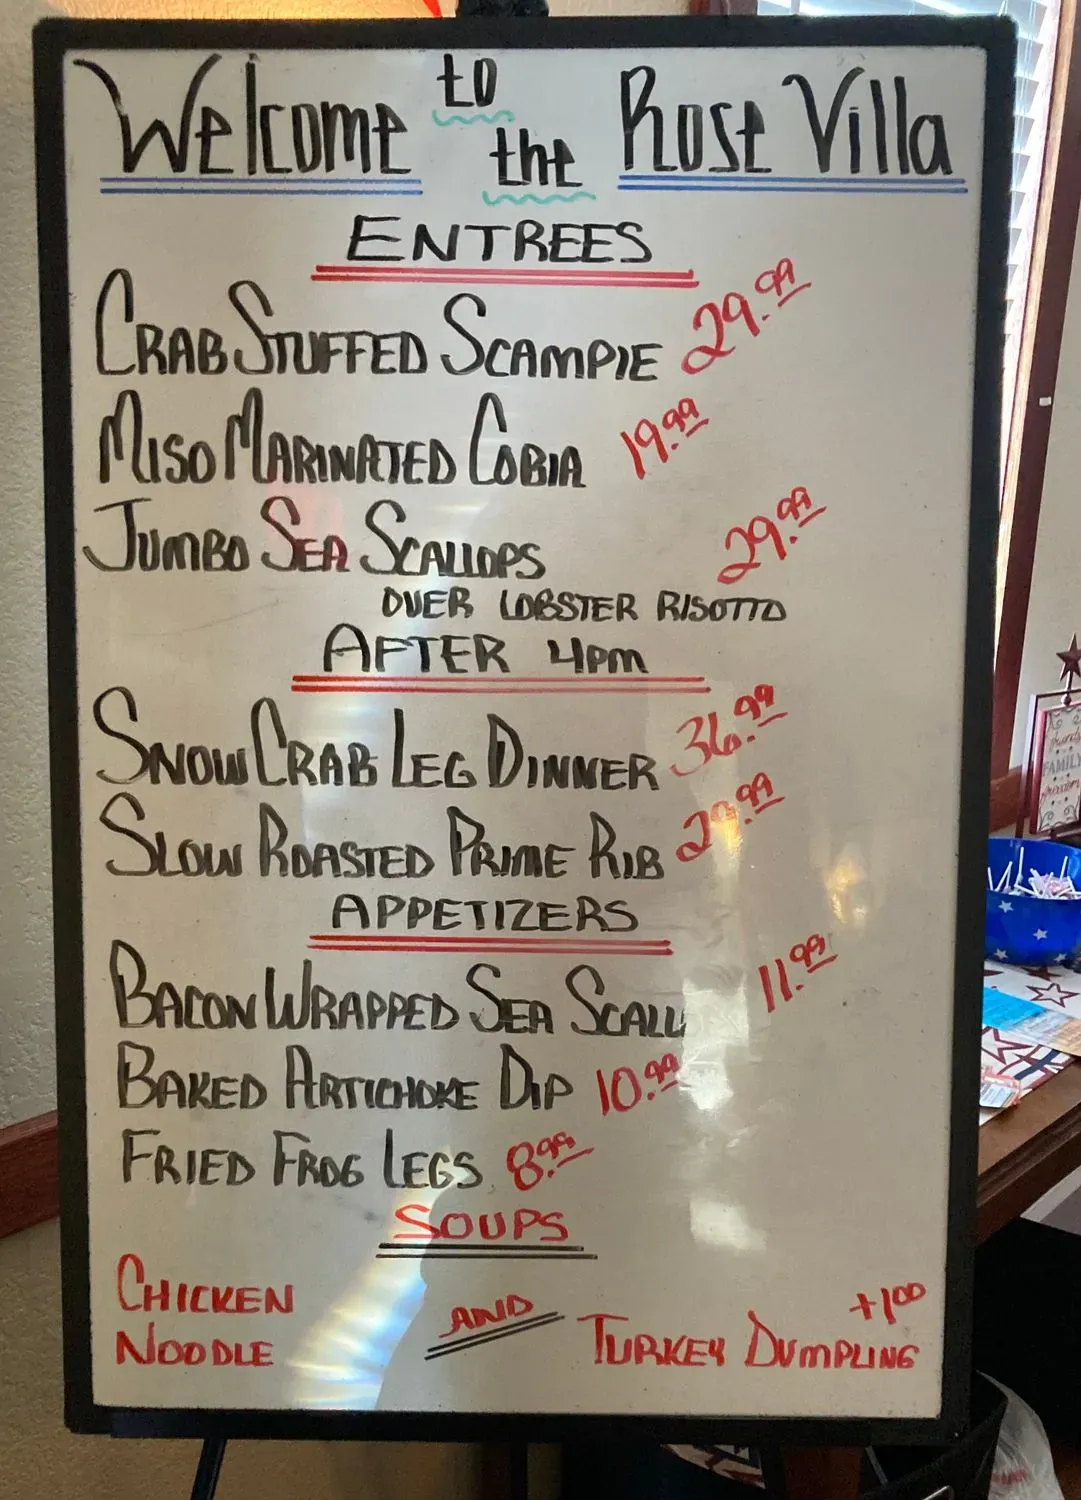 Welcome to the Rose Villa
ENTREES
CRAB STUFFED SCAMPIE 29.99
MISO MARINATED COBIA 19.99
JUMBO SEA SCALLOPS 29.99
OVER LOBSTER RISOTTO
AFTER 4PM
SNOW CRAB LEG DINNER 36.99
SLOW ROASTED PRIME RIB 29.99
APPETIZERS
BACON WRAPPED SEA SCALL 11.99
BAKED ARTICHOKE DIP 10.99
FRIED FROG LEGS 8.99
SOUPS
CHICKEN NOODLE AND TURKEY DUMPLING +1.00
FAMILY
freedom